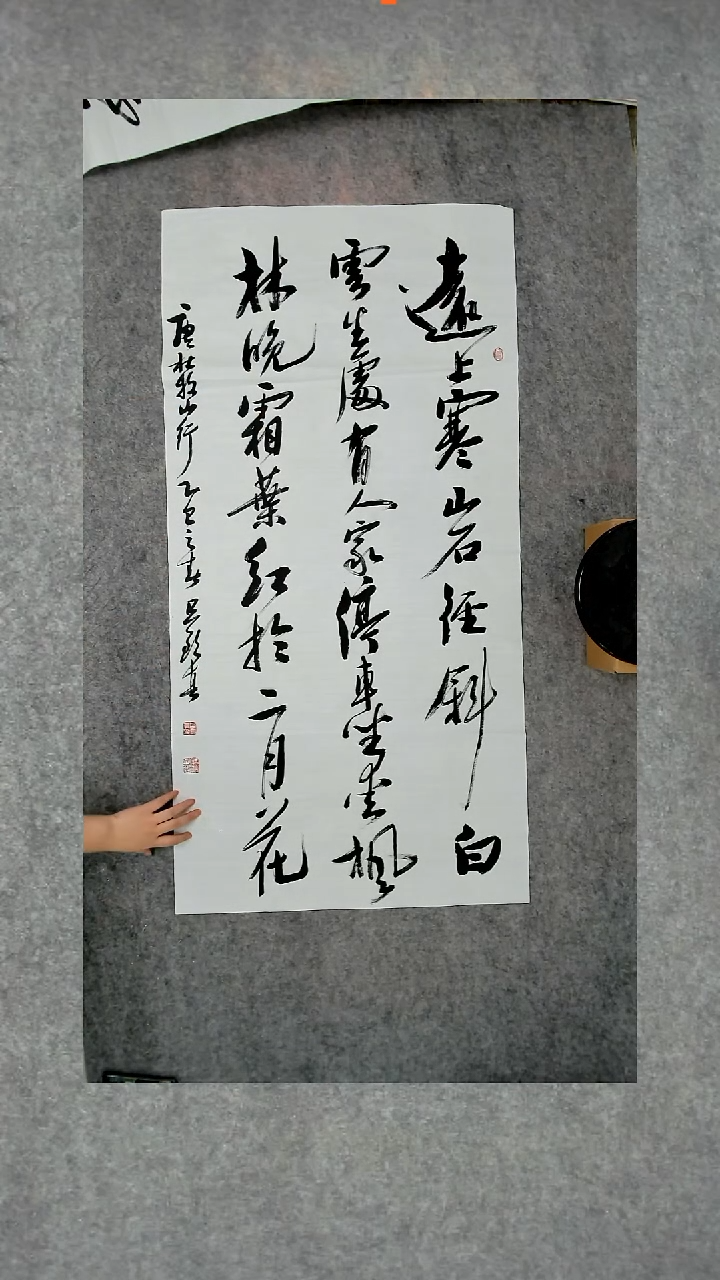 遠上寒山石徑斜白
雲生處有人家停車坐愛楓
林晚霜葉紅於二月花
唐杜牧山行乙巳之春